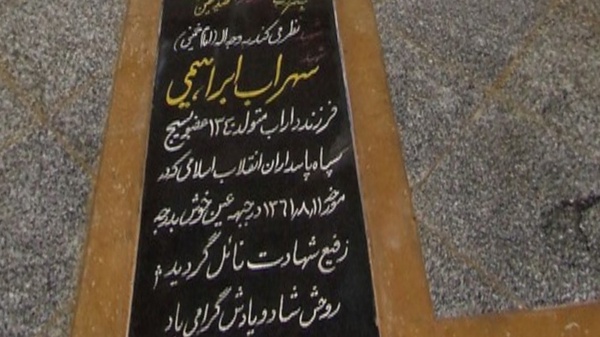 نظر می کند به وجه الله (امام خمینی)
سهراب ابراهیمی
فرزند داراب متولد ۱۳۴۰ عضو بسیج
سپاه پاسداران انقلاب اسلامی که در
مورخه ۱۳۶۱،۸،۱۱ در جبهه عین خوش بدرجه
رفیع شهادت نائل گردید
روحش شاد و یادش گرامی باد